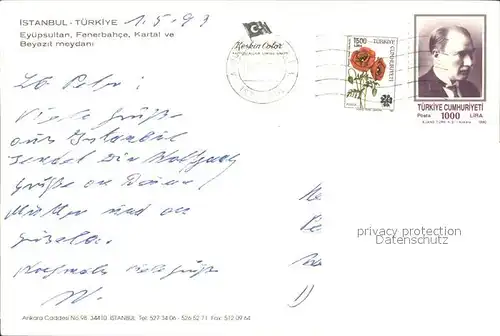 İSTANBUL - TÜRKİYE 1.5.93
Eyüpsultan, Fenerbahçe, Kartal ve
Beyazıt meydanı
Keskin Color
1500
LİRA
TÜRKİYE
CUMHURİYETİ
TÜRKİYE CUMHURİYETİ
Posta 1000 LİRA
Viele Grüße
aus Istanbul
sendet Dir Wolfgang
Grüße an Deine
Mutter und an
Gisela.
Nochmals viele Grüße
W.
privacy protection
Datenschutz
Ankara Caddesi No:98 34410 İSTANBUL Tel: 527 34 06 - 526 52 71 Fax: 512 09 64